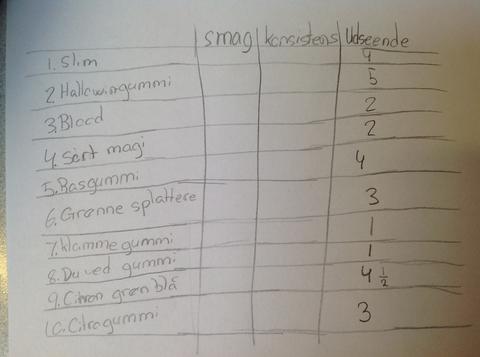 smag konsistens Udseende
1. Slim 4
2. Hallowingummi 5
3. Blood 2
4. Sort magi 2
5. Basgummi 4
6. Grønne splattere 3
7. Klamme gummi 1
8. Du ved gummi 1
9. Citron grøn blå 4 1/2
10. Citrogummi 3